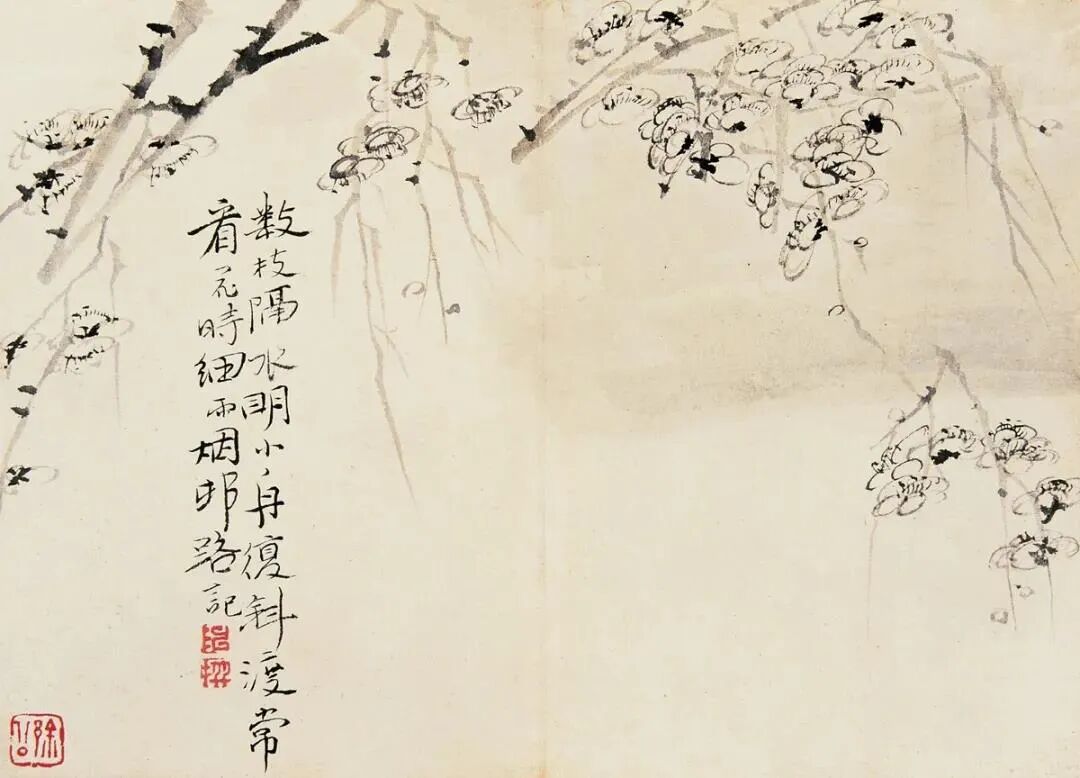 数枝隔水明小舟復斜渡常
看花時細雨烟邨路記
徐公